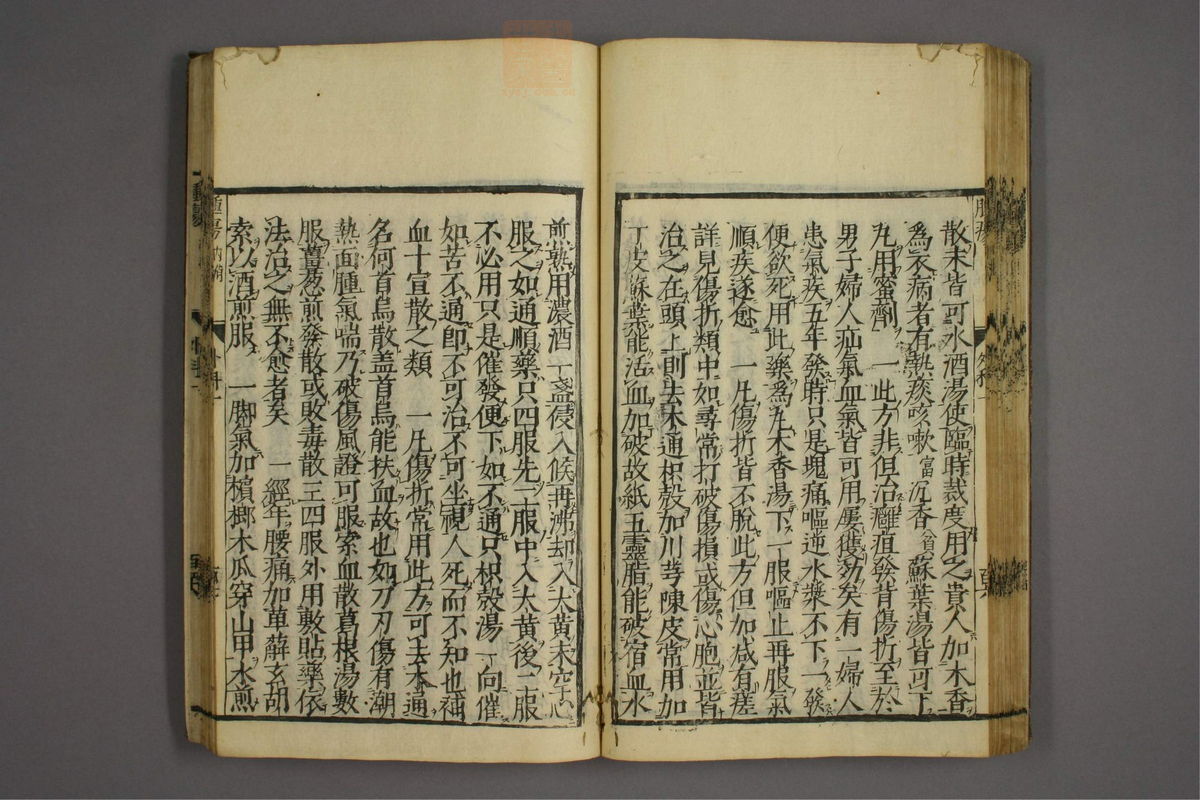 散末皆可水酒湯使臨時裁度用之貴人加木香
爲衣病者有熱痰咳嗽富沉香貧蘇葉湯皆可下
丸用蜜劑 一此方非但治癰疽發背傷折至於
男子婦人疝氣血氣皆可用屢獲効矣有一婦人
患氣疾五年發時只是塊痛嘔逆水漿不下一發
便欲死用此藥爲丸木香湯下一服嘔止再服氣
順疾遂愈 一凡傷折皆不脫此方但加減有差
詳見傷折類中如尋常打破傷損或傷心胞並皆
治之在頭上則去木通枳殼加川芎陳皮常用加
丁皮蘇葉能活血加破故紙五靈脂能破宿血水
煎熟用濃酒一盞侵入候再沸却入大黃末空心
服之如通順藥只四服先二服中入大黃後二服
不必用只是催發便下如不通只枳殼湯一向催
如苦不通即不可治不可坐視人死而不知也補
血十宣散之類 一凡傷折常用此方可去木通
名何首烏散盖首烏能扶血故也如刀刃傷有潮
熱面腫氣喘乃破傷風證可服索血散葛根湯數
服薑葱煎發散或敗毒散三四服外用敷貼藥依
法治之無不愈者矣 一經年腰痛加萆薢玄胡
索以酒煎服 一脚氣加檳榔木瓜穿山甲水煎